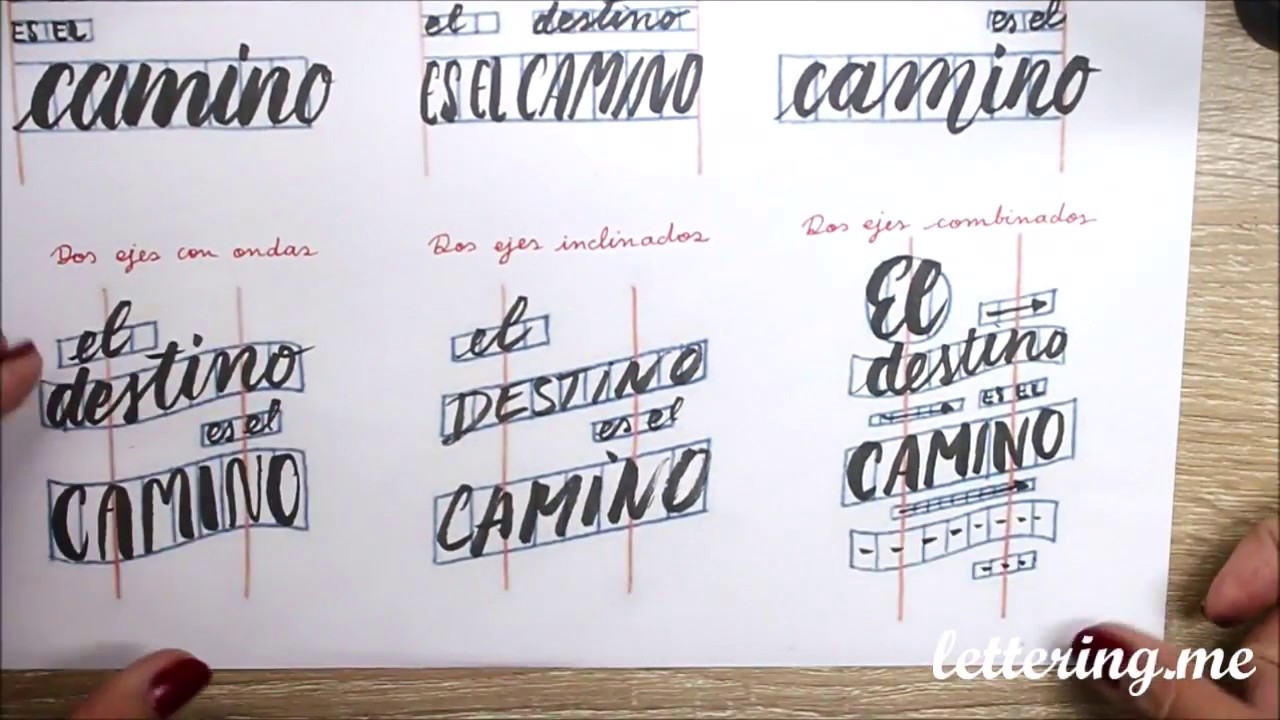 ES EL
camino
el destino
ES EL CAMINO
es el
camino
Dos ejes con ondas
el
destino
es el
CAMINO
Dos ejes inclinados
el
DESTINO
es el
CAMINO
Dos ejes combinados
El
destino
ES EL
CAMINO
lettering.me